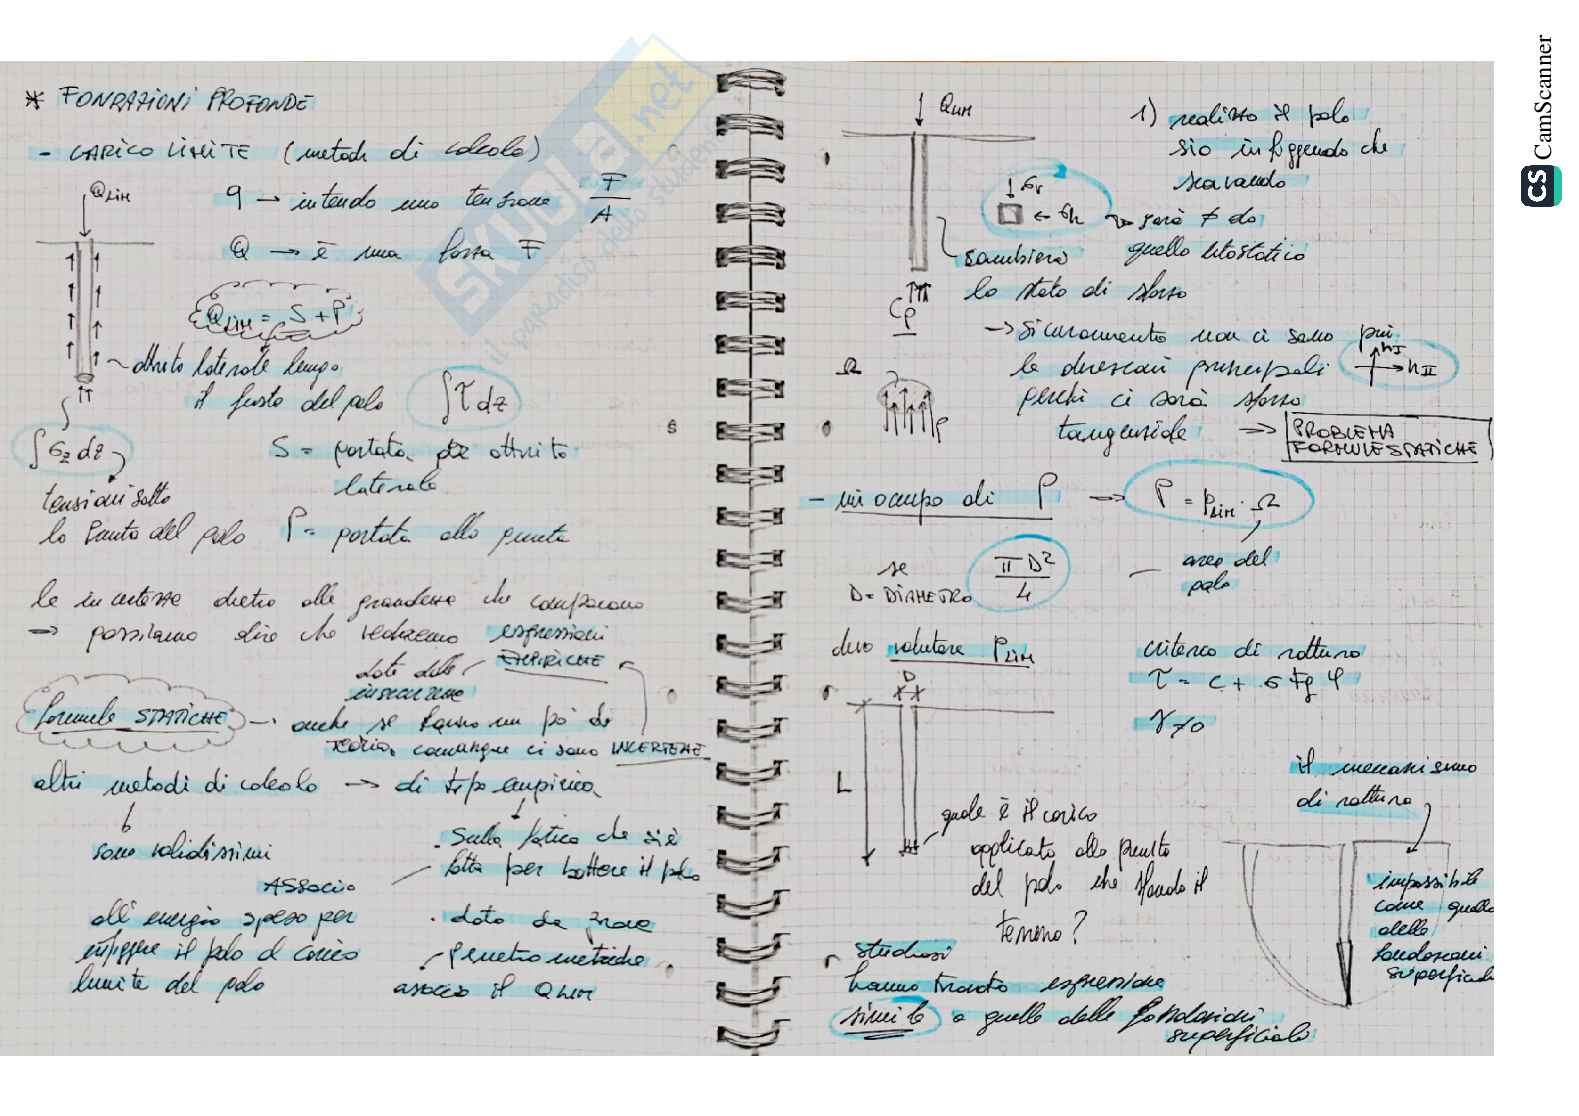 * FONDAZIONI PROFONDE
- CARICO LIMITE (metodi di calcolo)
Q LIM
q → intendo una tensione F/A
Q → è una forza F
Q LIM = S + P
attrito laterale lungo
il fusto del palo ∫τ dz
∫σz dz
tensioni sotto
la punta del palo
S = portata per attrito
laterale
P = portata alla punta
le incertezze dietro alle grandezze che compaiono
→ possiamo dire che vedremo espressioni
EMPIRICHE
date dalle
incertezze
formule STATICHE → anche se hanno un po' di
teoria, comunque ci sono INCERTEZZE
altri metodi di calcolo → di tipo empirico
sono validissimi
. Sulla fatica che si è
fatta per battere il palo
ASSOCIO
all'energia spesa per
infiggere il palo il carico
limite del palo
. date da prove
penetrometriche
associo il Q LIM
Q LIM
1) realizzo il palo
sia infiggendo che
scavando
σv
← σh
→ sarà ≠ da
quello litostatico
cambierà
lo stato di sforzo
P
→ sicuramente non ci sono più
le direzioni principali
n I
n II
perché ci sarà sforzo
tangenziale ⇒ PROBLEMA
FORMULE STATICHE
Ω
P
- mi occupo di P → P = p LIM · Ω
area del
palo
se
D = DIAMETRO
πD²/4
devo valutare P LIM
criterio di rottura
τ = c + σ tg φ
γ ≠ 0
D
L
quale è il carico
applicato alla punta
del palo che manda il
terreno?
il meccanismo
di rottura
impossibile
come quello
delle
fondazioni
superficiali
studiosi
hanno trovato espressione
simile a quelle delle fondazioni
superficiali
SKUOLA.net
il paradiso dello studente
CS CamScanner